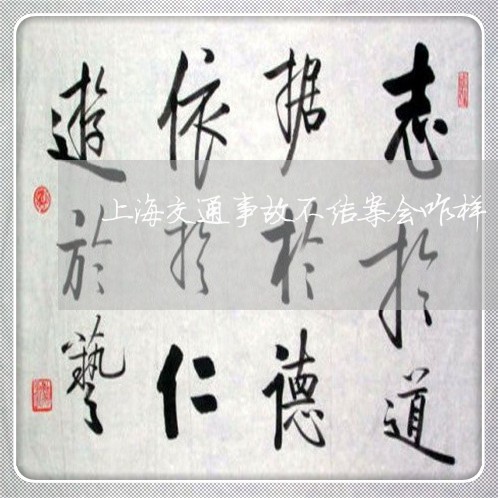 志於道
据於德
依於仁
遊於藝
上海交通事故不结案会咋样